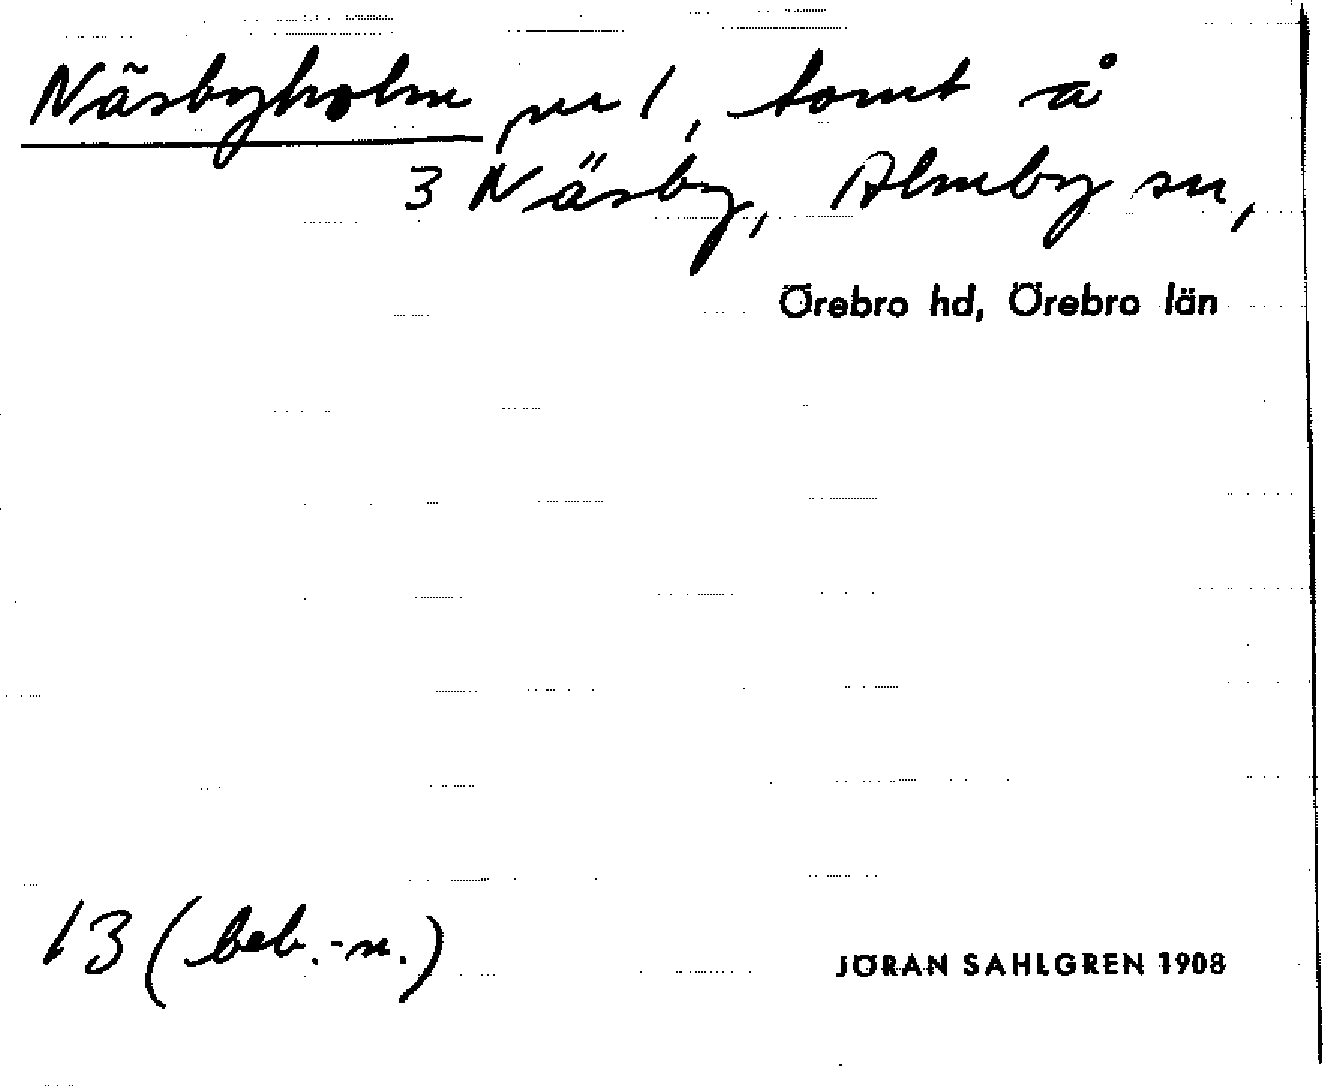 Näsbyholm nr 1, tomt å
3 Näsby, Almby sn,
Örebro hd, Örebro län
13 (beb.-n.)
JÖRAN SAHLGREN 1908